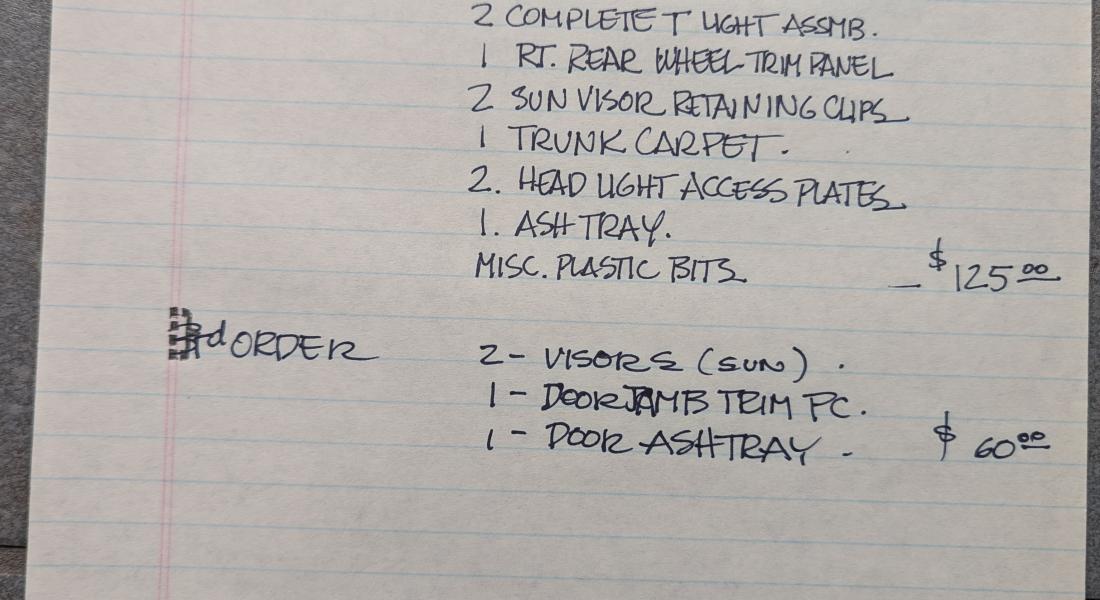 2 COMPLETE T LIGHT ASSMB.
1 RT. REAR WHEEL TRIM PANEL
2 SUN VISOR RETAINING CLIPS
1 TRUNK CARPET.
2. HEAD LIGHT ACCESS PLATES
1. ASH TRAY.
MISC. PLASTIC BITS - $125.00
3rd ORDER 2- VISORS (SUN).
1- DOOR JAMB TRIM PC.
1- DOOR ASHTRAY - $60.00